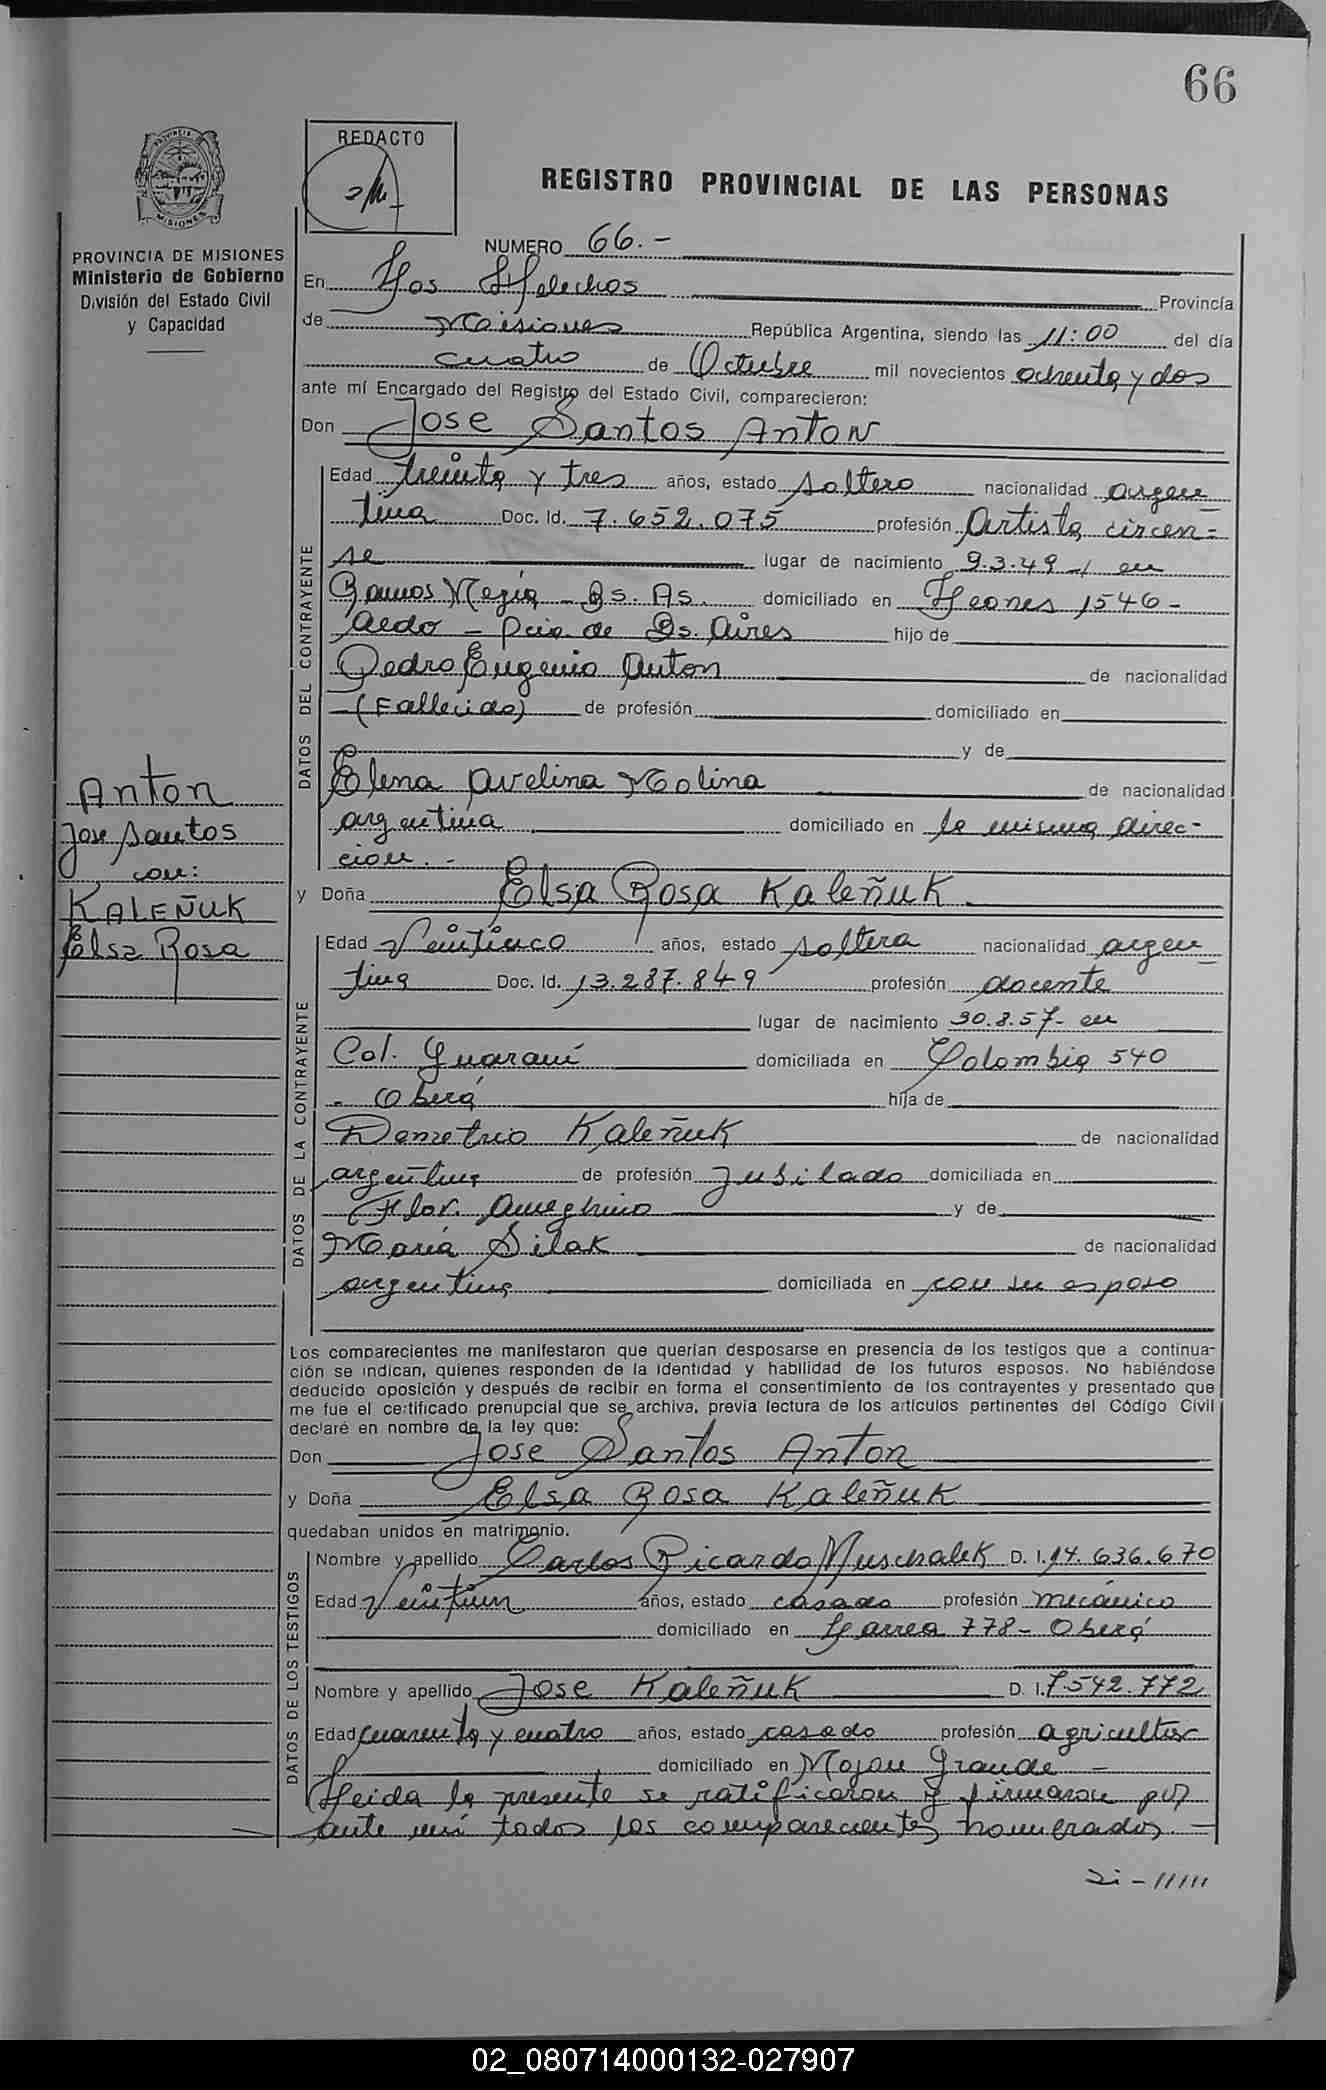 66
REDACTO
REGISTRO PROVINCIAL DE LAS PERSONAS
PROVINCIA DE MISIONES
Ministerio de Gobierno
División del Estado Civil
y Capacidad
NUMERO 66.-
En Los Helechos Provincia
de Misiones República Argentina, siendo las 11:00 del día
cuatro de Octubre mil novecientos ochenta y dos
ante mí Encargado del Registro del Estado Civil, comparecieron:
Don Jose Santos Anton
DATOS DEL CONTRAYENTE
Edad treinta y tres años, estado soltero nacionalidad argen
tina Doc. Id. 7.652.075 profesión Artista circen=
se lugar de nacimiento 9.3.49 en
Ramos Mejia - Bs. As. domiciliado en Leones 1546 -
Aldo - Pcia. de Bs. Aires hijo de
Pedro Eugenio Anton de nacionalidad
(Fallecido) de profesión domiciliado en
y de
Elena Avelina Molina de nacionalidad
argentina domiciliado en la misma direc-
cion. -
Anton
Jose Santos
con:
KALEÑUK
Elsa Rosa
y Doña Elsa Rosa Kaleñuk
DATOS DE LA CONTRAYENTE
Edad Veinticinco años, estado soltera nacionalidad argen
tina Doc. Id. 13.287.849 profesión docente
lugar de nacimiento 30.8.57- en
Col. Guaraní domiciliada en Colombia 540
- Oberá hija de
Demetrio Kaleñuk de nacionalidad
argentina de profesión Jubilado domiciliada en
Flor. Ameghino y de
María Silak de nacionalidad
argentina domiciliada en con su esposo
Los comparecientes me manifestaron que querían desposarse en presencia de los testigos que a continua-
ción se indican, quienes responden de la identidad y habilidad de los futuros esposos. No habiéndose
deducido oposición y después de recibir en forma el consentimiento de los contrayentes y presentado que
me fue el certificado prenupcial que se archiva, previa lectura de los artículos pertinentes del Código Civil
declaré en nombre de la ley que:
Don Jose Santos Anton
y Doña Elsa Rosa Kaleñuk
quedaban unidos en matrimonio.
DATOS DE LOS TESTIGOS
Nombre y apellido Carlos Ricardo Muschalek D. I. 14.636.670
Edad Veintiun años, estado casado profesión mecánico
domiciliado en Larrea 778- Oberá
Nombre y apellido Jose Kaleñuk D. I. 7542.772
Edad cuarenta y cuatro años, estado casado profesión agricultor
domiciliado en Mojon Grande -
Leida la presente se ratificaron y firmaron por
ante mí todos los comparecientes nombrados. -
02_080714000132-027907